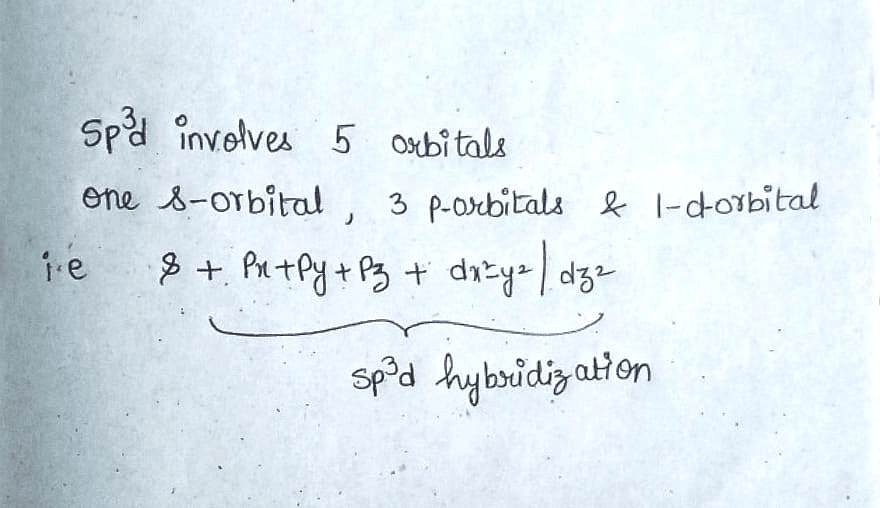 sp³d involves 5 orbitals
one s-orbital, 3 p-orbitals & 1-d-orbital
i.e s + Px + Py + Pz + dx²y² | dz²
sp³d hybridization